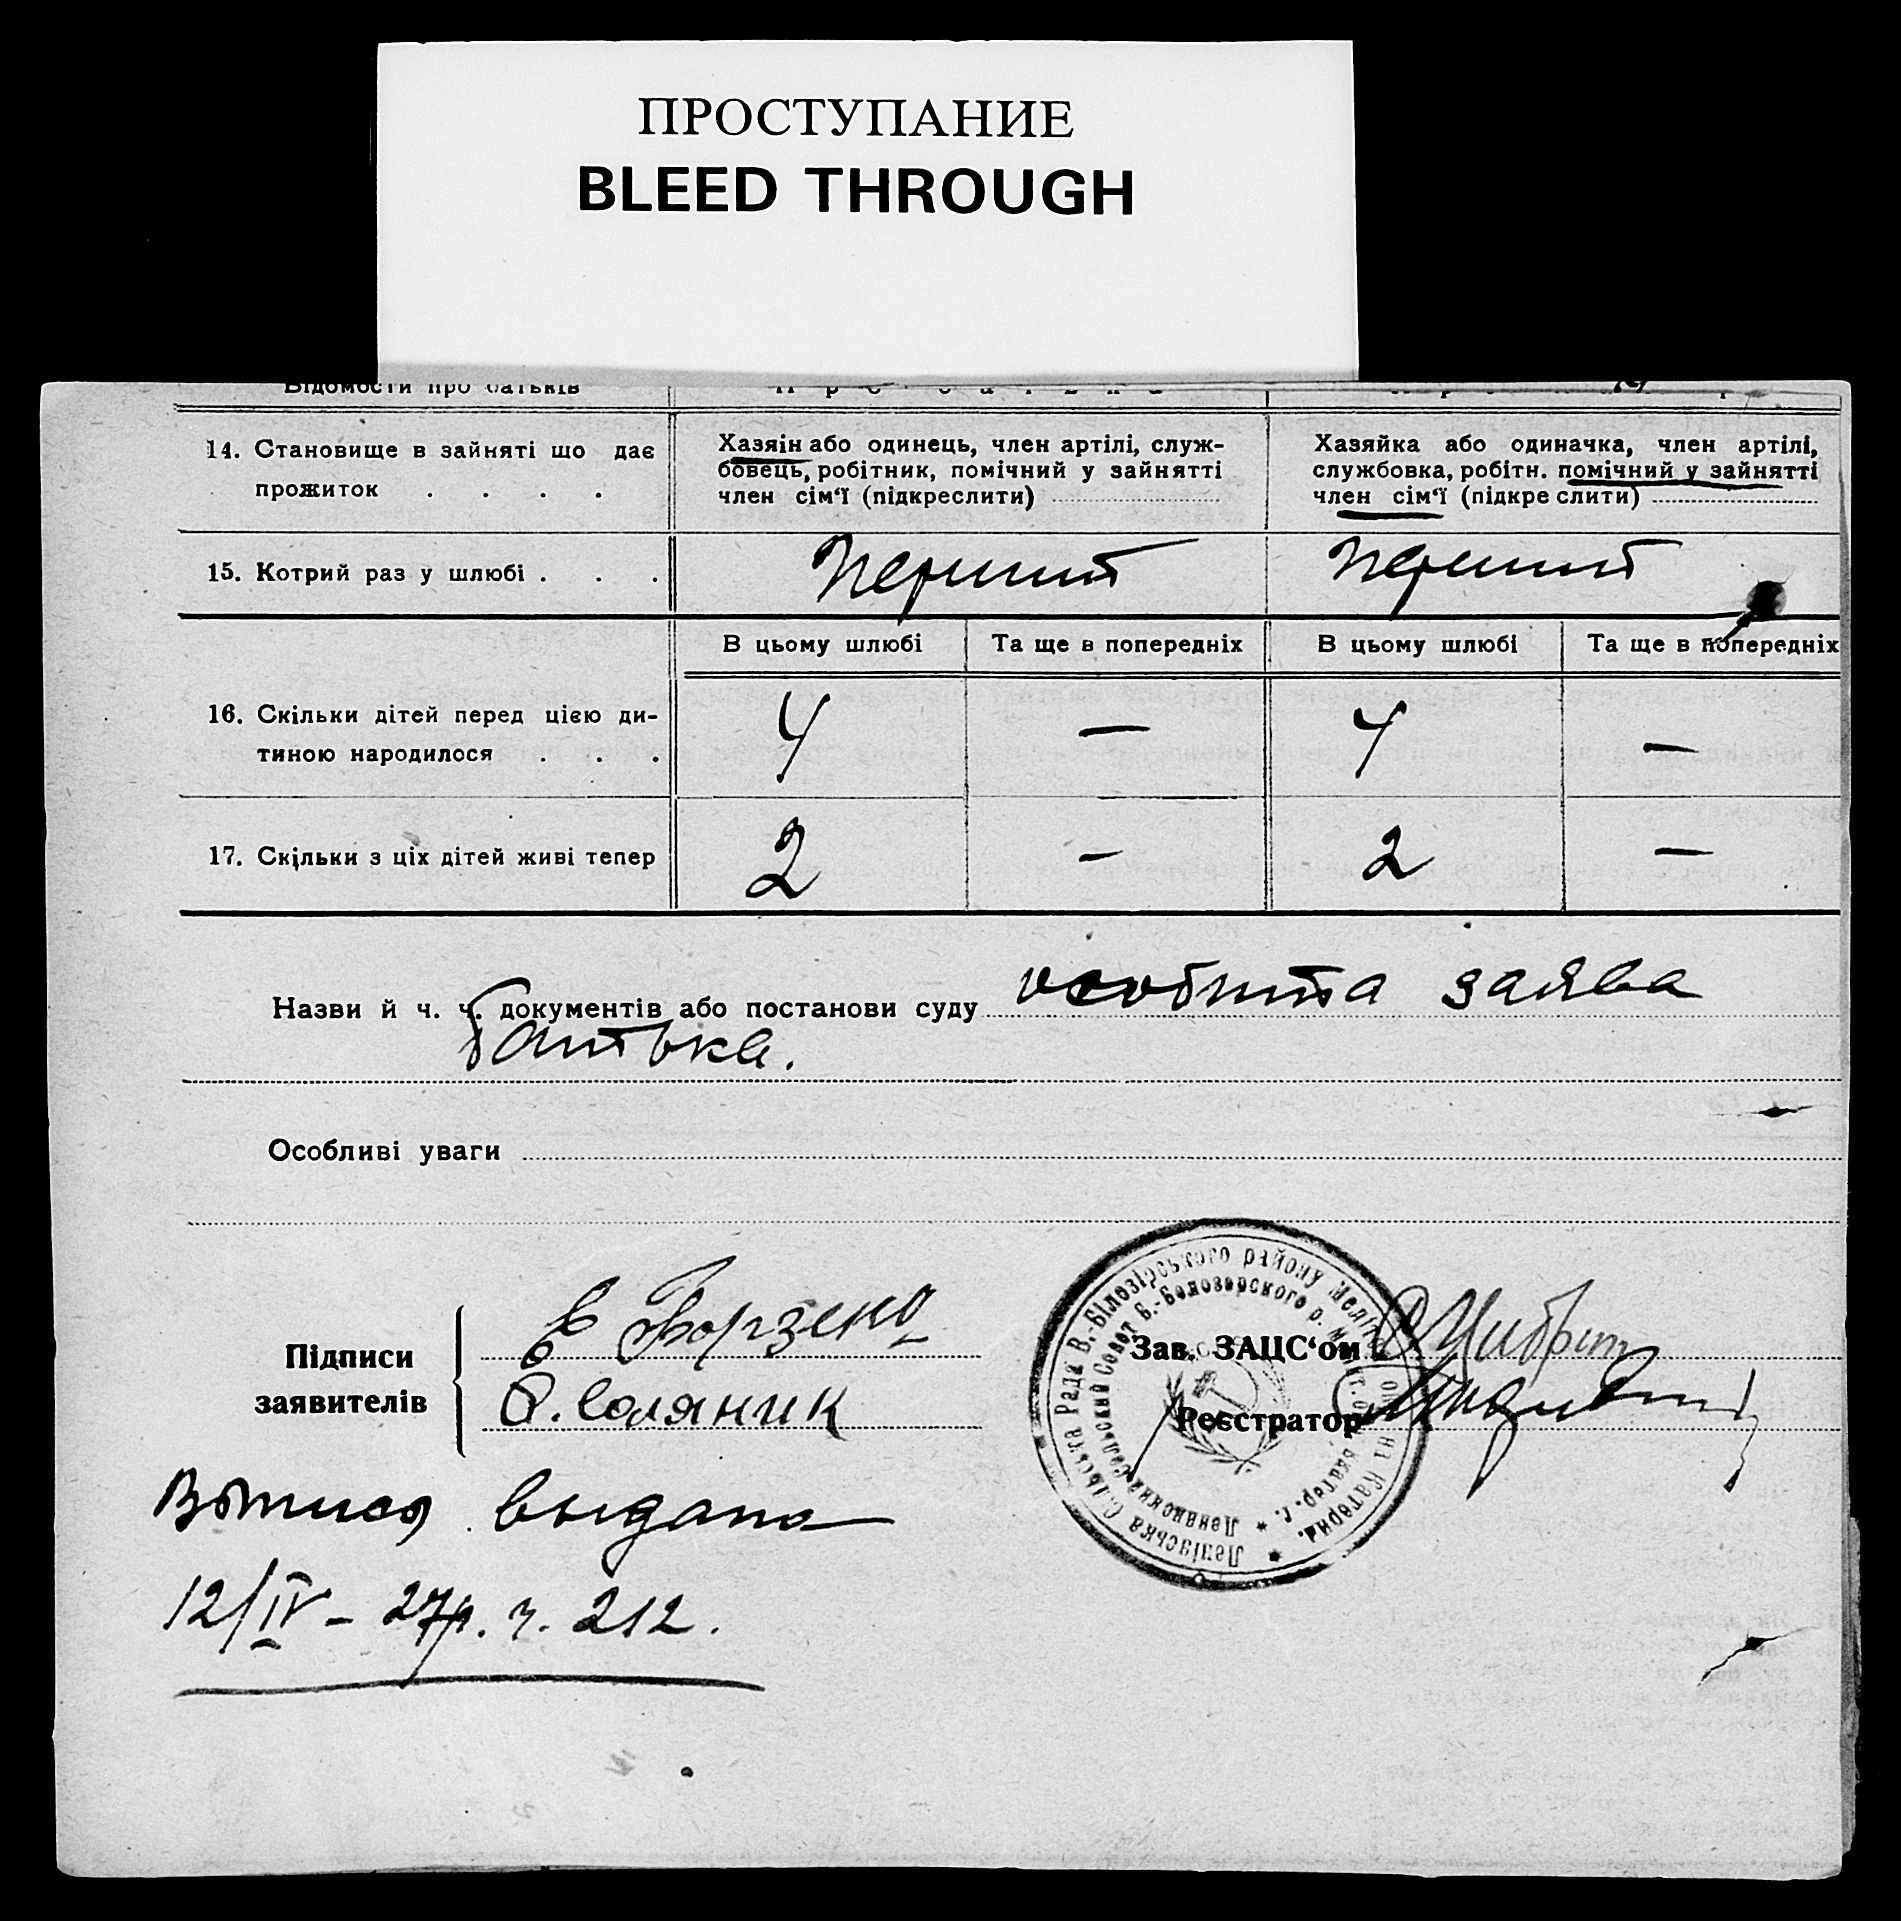 ПРОСТУПАНИЕ
BLEED THROUGH
Відомости про батьків
14. Становище в зайняті що дає
прожиток . . . .
Хазяін або одинець, член артілі, служ-
бовець, робітник, помічний у зайнятті
член сім‘ї (підкреслити)
Хазяйка або одиначка, член артілі,
службовка, робітн. помічний у зайнятті
член сім‘ї (підкреслити)
15. Котрий раз у шлюбі . . .
перший
перший
В цьому шлюбі
Та ще в попередніх
В цьому шлюбі
Та ще в попередніх
16. Скільки дітей перед цією ди-
тиною народилося . . .
4 — 4 —
17. Скільки з ціх дітей живі тепер
2 — 2 —
Назви й ч. ч. документів або постанови суду особита заява
батька.
Особливі уваги
Підписи
заявителів
Е Борзенко
О. Соляник
Зав. ЗАЦС‘ом
Реєстратор
Ленінська Сільська Рада В.-Білозірського району Меліт на Катерин.
Ленинский Сельский Совет В.-Белозерского р.
выдана
12/IV – 27р. ч. 212.